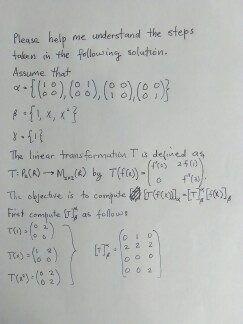 Please help me understand the steps
taken in the following solution.
Assume that
α = {(1 0 0 0), (0 1 0 0), (0 0 1 0), (0 0 0 1)}
β = {1, x, x²}
γ = {1}
The linear transformation T is defined as
T: P₂(R) → M₂ₓ₂(R) by T(f(x)) = (f'(0) 2f(1) 0 f''(3)).
The objective is to compute [T(f(x))]α = [T]αβ [f(x)]β
First compute [T]αβ as follows
T(1) = (0 2 0 0)
T(x) = (1 2 0 0)
T(x²) = (0 2 0 2)
[T]αβ = (0 1 0 2 2 2 0 0 0 0 0 2)